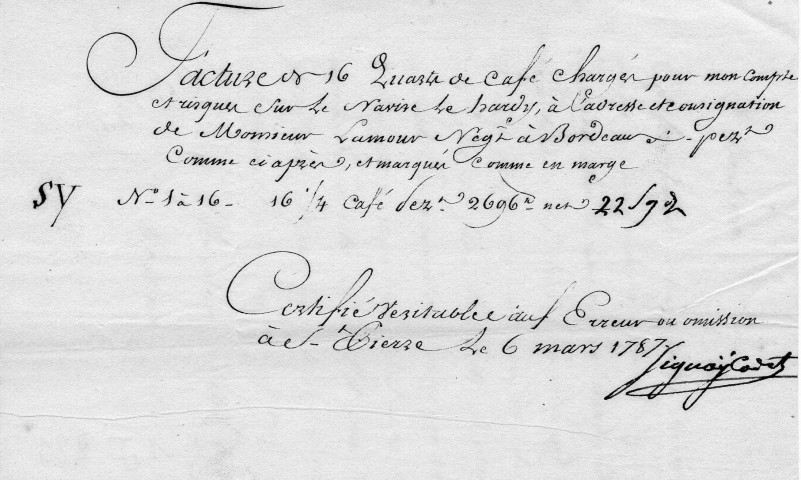 Facture de 16 Quarts de café chargés pour mon compte
et risques sur le Navire le hardy, à l'adresse et consignation
de Monsieur Lamour Negt à Bordeaux - pezt
Comme ci après, et marqués comme en marge
SY N° 1 à 16 - 16/4 café pezt 2696 net
Certifié veritable sauf Erreur ou omission
à St Pierre le 6 mars 1787